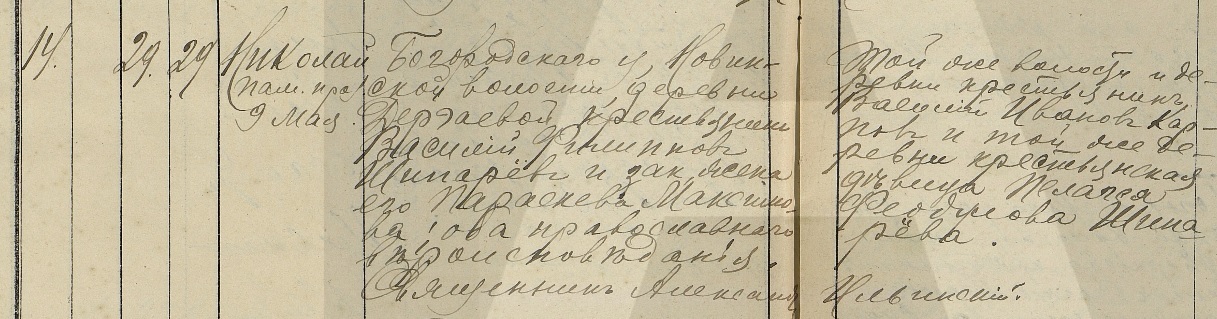 14. 29. 29 Николай
(пам. праз.
9 мая.
Богородскаго у, Новин-
ской волости, деревни
Дергаевой крестьянинъ
Василій Филипповъ
Шипарёвъ и зак. жена
его Параскева Максимо-
ва, оба православнаго
вѣроисповѣданія.
Той же волости и де-
ревни крестьянинъ
Василій Ивановъ Кар-
повъ и той же де-
ревни крестьянская
дѣвица Пелагея
Феодулова Шипа-
рёва.
Священникъ Александръ Ильинскій.